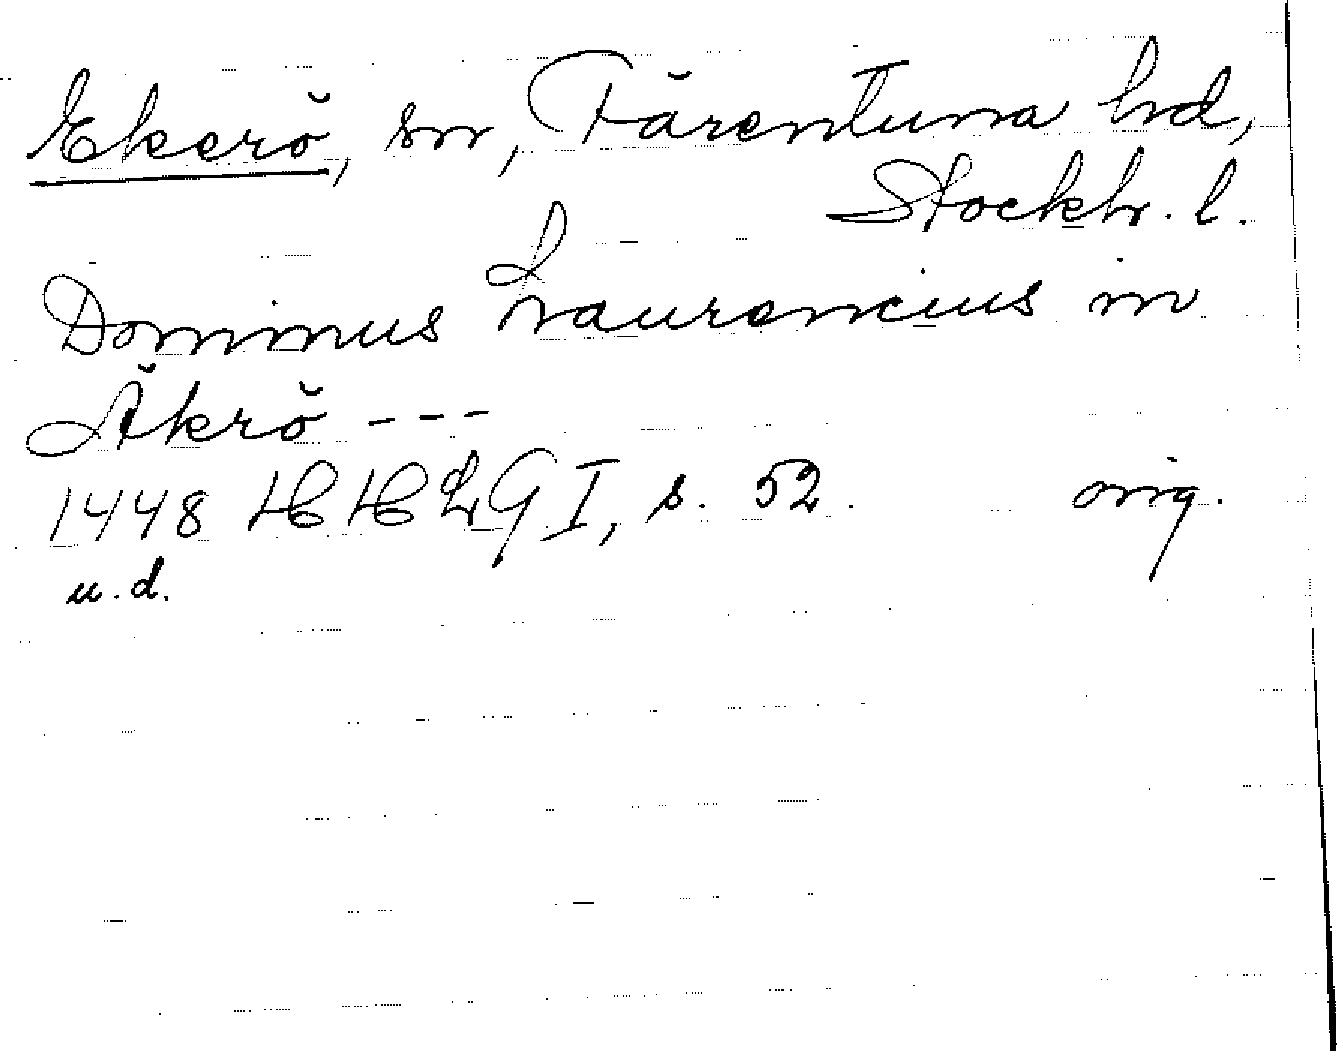 Ekerö, sn, Färentuna hd,
Stockh. l.
Dominus Laurencius in
Äkrö ---
1448 HHLG I, s. 52. orig.
u.d.